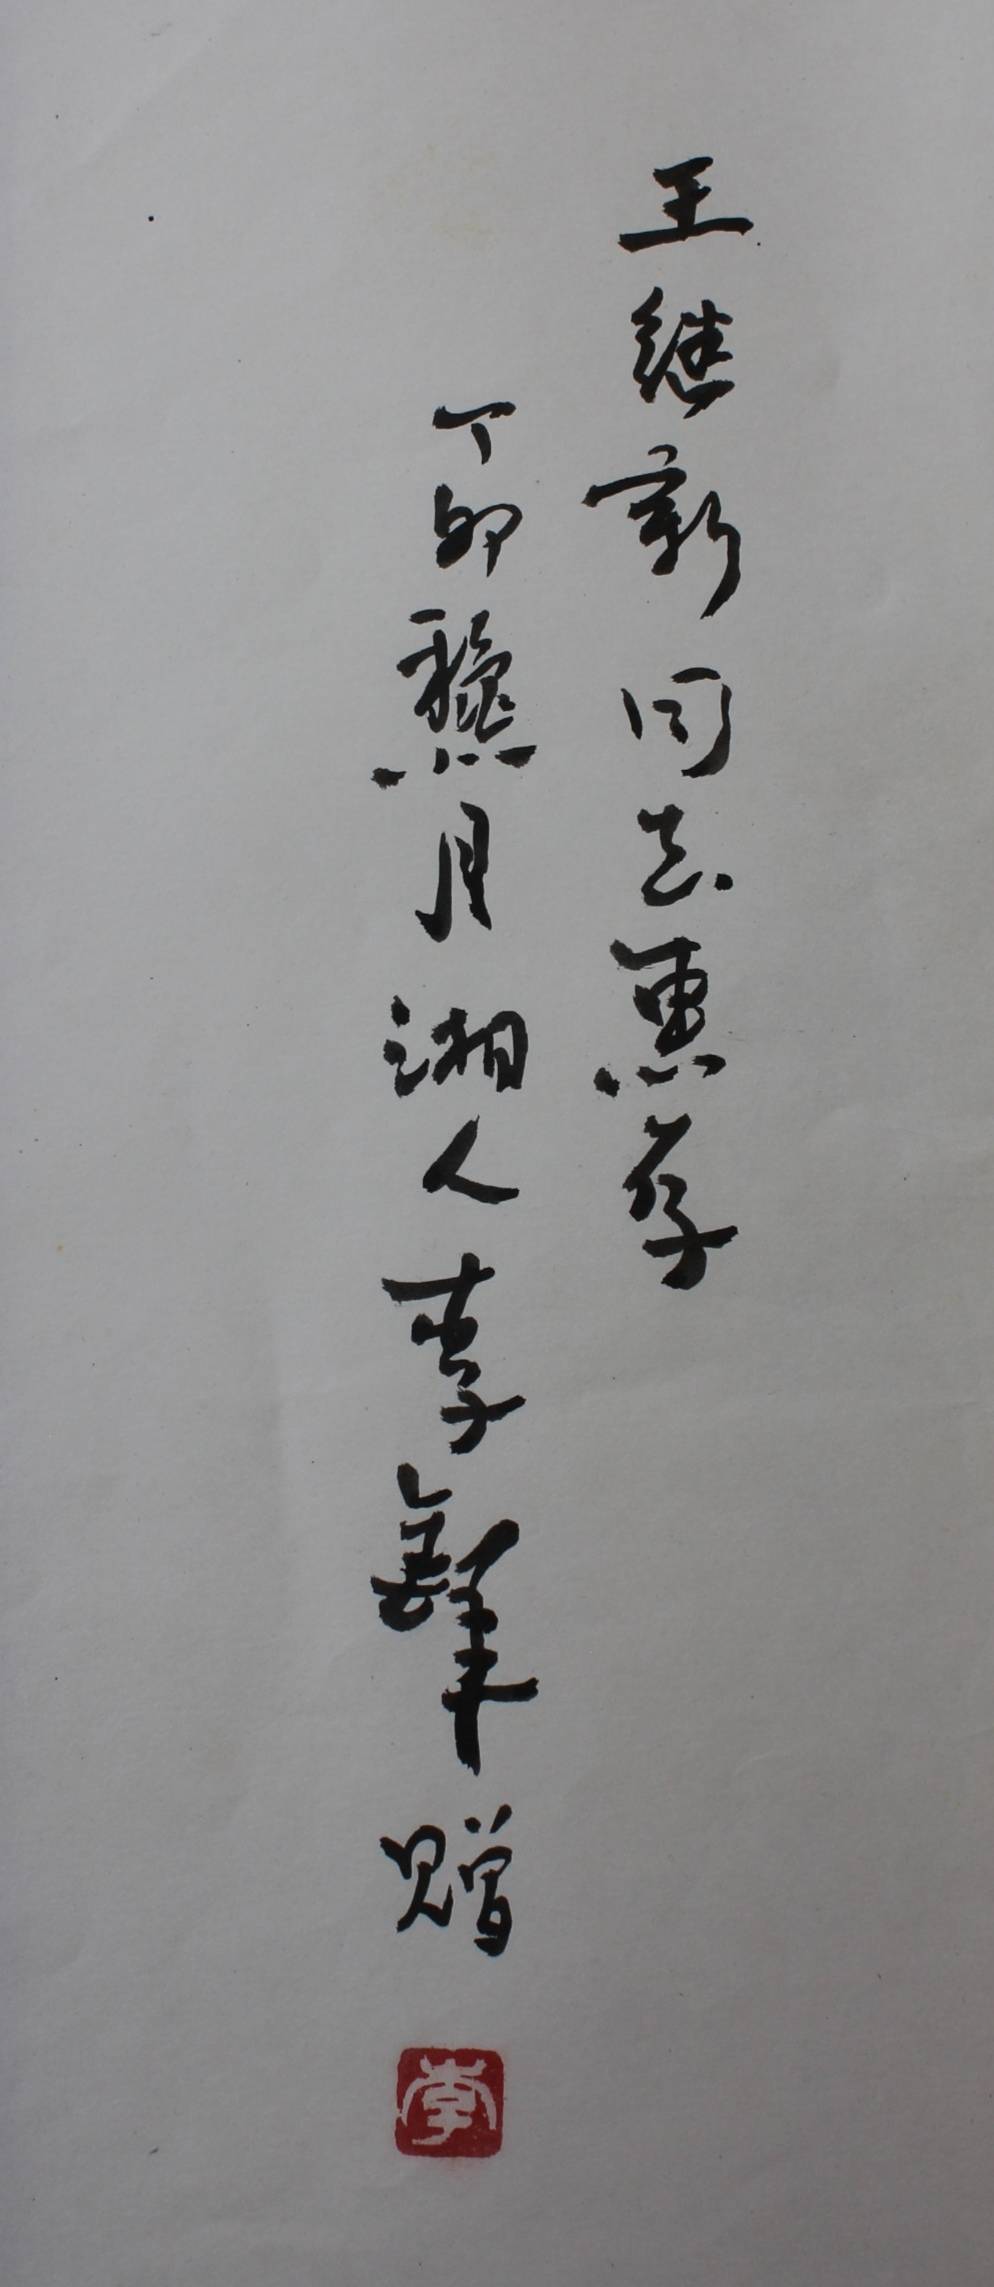 王继新同志惠存
丁卯龝月湘人李鐸赠
李